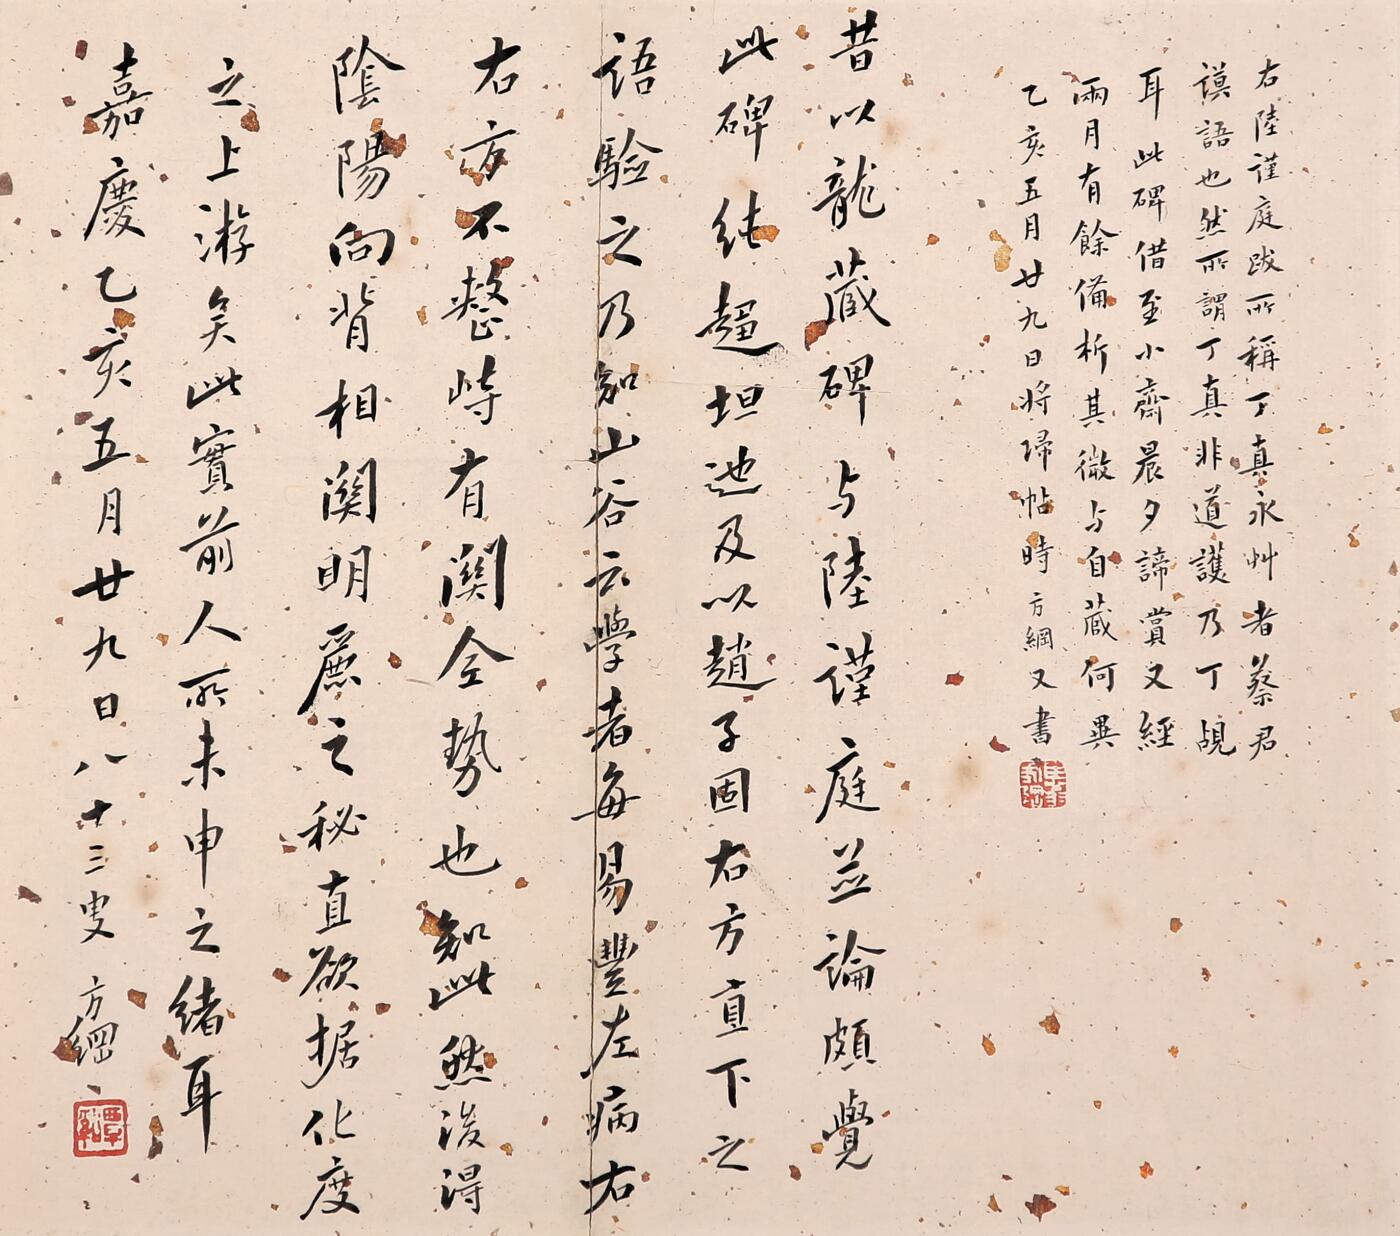 右陸謹庭跋所稱丁真永艸者蔡君
謨語也然所謂丁真非道護乃丁覘
耳此碑借至小齋晨夕諦賞又經
兩月有餘備析其微与自蔵何異
乙亥五月廿九日将归帖時方綱又書
昔以龍蔵碑与陸謹庭並論頗覺
此碑純趨坦迆及以趙子固右方直下之
語驗之乃知山谷云學者每易豐左病右
右方不整峙有関全勢也知此然後得
陰陽向背相関明麗之秘直欲据化度
之上游矣此實前人所未申之緒耳
嘉慶乙亥五月廿九日八十三叟方綱